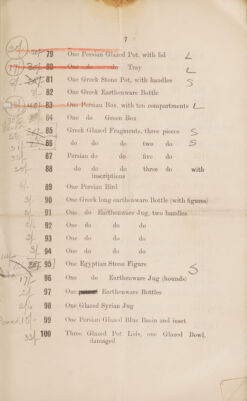 7
79 One Persian Glazed Pot, with lid L
80 One do do Tray L
81 One Greek Stone Pot, with handles S
82 One Greek Earthenware Bottle
83 One Persian Box, with ten compartments L
84 One do Green Box
85 Greek Glazed Fragments, three pieces S
86 do do do two do S
87 Persian do do five do
88 do do do three do with
inscriptions
89 One Persian Bird
90 One Greek long earthenware Bottle (with figures)
91 One do Earthenware Jug, two handles
92 One do do do
93 One do do do
94 One do do do
95 One Egyptian Stone Figure S
96 One do Earthenware Jug (hounds)
97 One Earthenware Bottles
98 One Glazed Syrian Jug
99 One Persian Glazed Blue Basin and inset
100 Three Glazed Pot Lids, one Glazed Bowl,
damaged